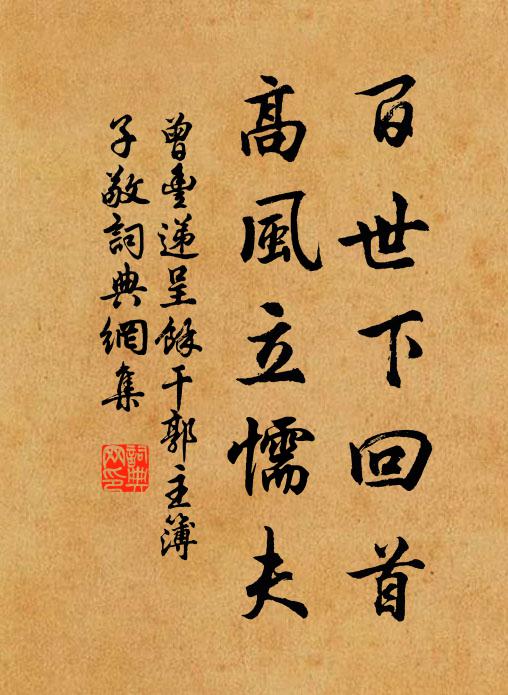 百世下回首
高風立懦夫
曾豐遞呈餘干郭主簿
子敬詞典網集
詞典網印